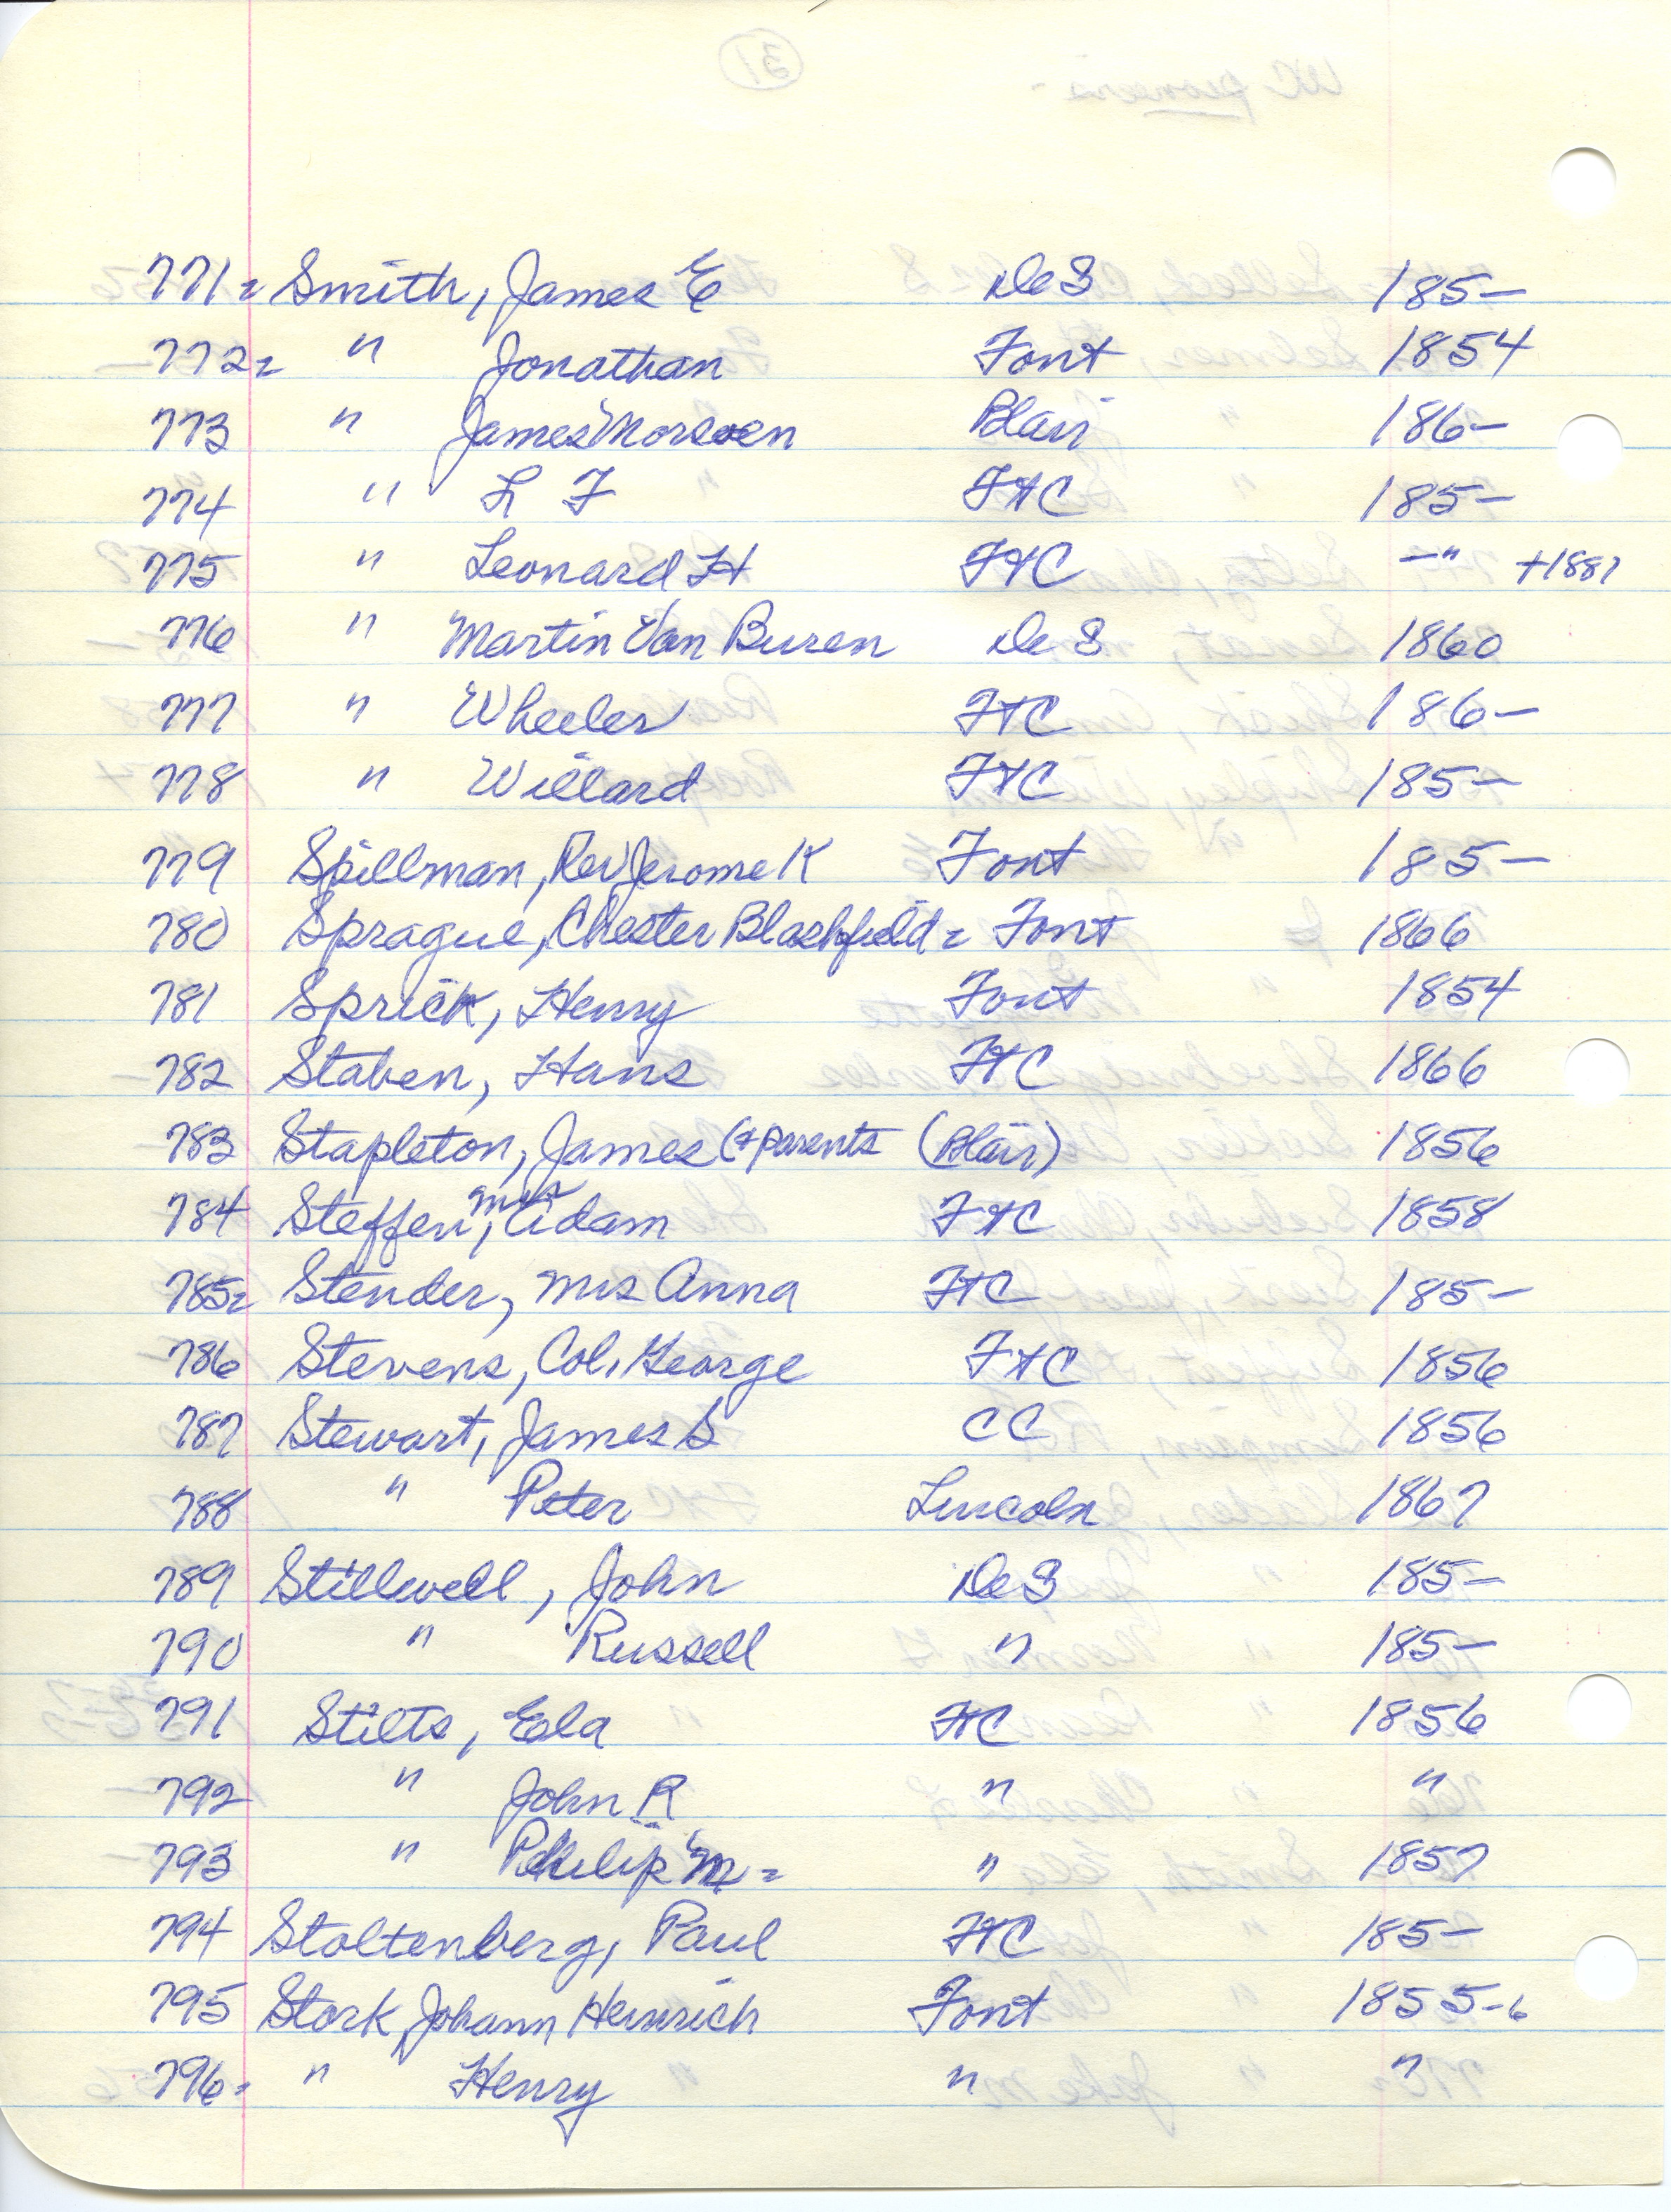 771 = Smith, James E De S 185-
772 = " Jonathan Font 1854
773 " James Blair 186-
774 " L F FTC 185-
775 " Leonard H FTC -" +1887
776 " Martin Van Buren De S 1860
777 " Wheeler FTC 186-
778 " Willard FTC 185-
779 Spillman, Rev Jerome K Font 185-
780 Sprague, Chester Blashfield = Font 1866
781 Sprick, Henry Font 1854
782 Staben, Hans FTC 1866
783 Stapleton, James (+ parents (Blair) 1856
784 Steffen, Mrs Adam FTC 1858
785 = Stender, Mrs Anna FTC 185-
786 Stevens, Col. George FTC 1856
787 Stewart, James S CC 1856
788 " Peter Lincoln 1867
789 Stillwell, John De S 185-
790 " Russell " 185-
791 Stilts, Ela FTC 1856
792 " John R " "
793 " Philip M = " 1857
794 Stoltenberg, Paul FTC 185-
795 Stork, Johann Heinrich Font 1855-6
796 = " Henry " "